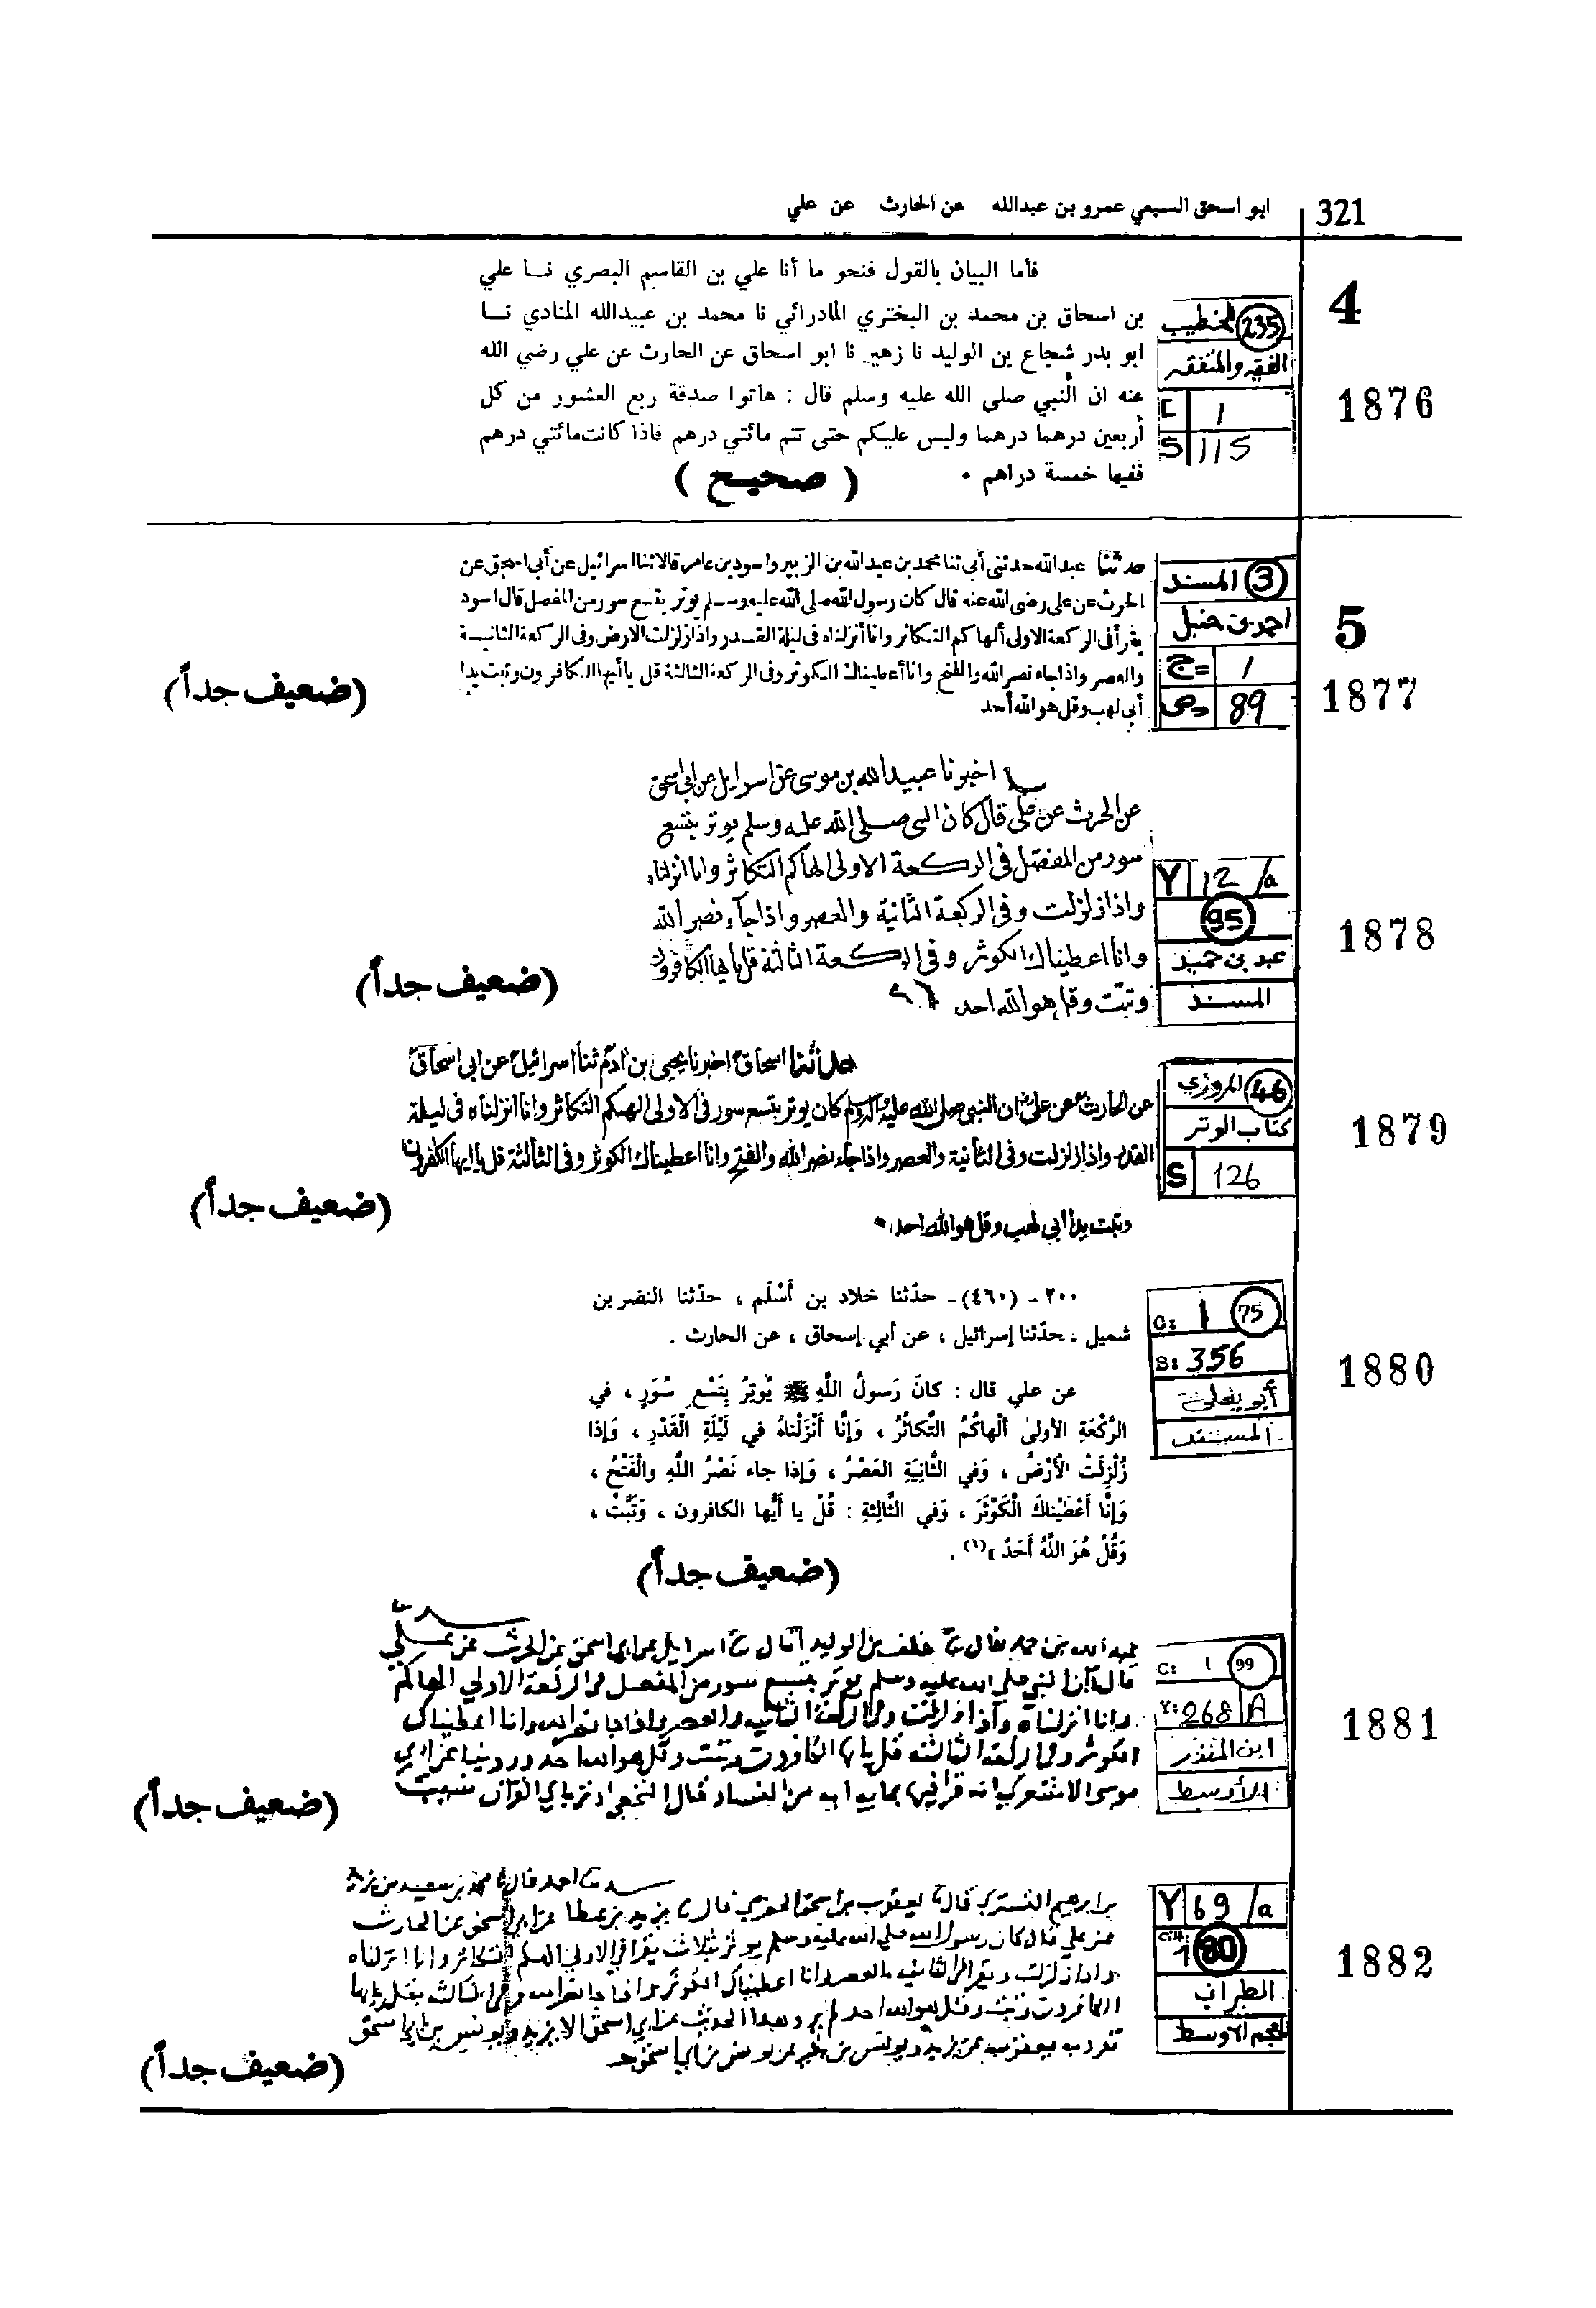 321
ابو اسحق السبعي عمرو بن عبدالله عن الحارث عن علي
4
1876
235 الخطيب
الفقيه والمتفقه
C 1
S 115
فأما البيان بالقول فنحو ما أنا علي بن القاسم البصري نـا علي
بن اسحاق بن محمد بن البختري المادرائي نا محمد بن عبيدالله المنادي نـا
ابو بدر شجاع بن الوليد نا زهير نا ابو اسحاق عن الحارث عن علي رضي الله
عنه ان النبي صلى الله عليه وسلم قال : هاتوا صدقة ربع العشور من كل
أربعين درهما درهما وليس عليكم حتى تتم مائتي درهم فاذا كانت مائتي درهم
ففيها خمسة دراهم .
( صحيح )
5
1877
3 المسند
احمد بن حنبل
ج= 1
ص= 89
حدثنا عبدالله حدثنى أبى ثنا محمد بن عبدالله بن الزبير واسود بن عامر قالا ثنا اسرائيل عن أبى اسحق عن
الحرث عن على رضى الله عنه قال كان رسول الله صلى الله عليه وسلم يوتر بتسع سور من المفصل قال اسود
يقرأ فى الركعة الاولى ألهاكم التكاثر وانا أنزلناه فى ليلة القدر واذا زلزلت الارض وفى الركعة الثانية
والعصر واذا جاء نصر الله والفتح وانا أعطيناك الكوثر وفى الركعة الثالثة قل يا أيها الكافرون وتبت يدا
أبى لهب وقل هو الله أحد
(ضعيف جداً)
1878
Y 12 /a
95
عبد بن حميد
المسند
اخبرنا عبيد الله بن موسى عن اسرايل عن ابى اسحق
عن الحرث عن على قال كان النبى صلى الله عليه وسلم يوتر بتسع
سور من المفصل فى الركعة الاولى الهاكم التكاثر وانا انزلناه
واذا زلزلت وفى الركعة الثانية والعصر واذا جآء نصر الله
وانا اعطيناك الكوثر وفى الركعة الثالثة قل يايها الكافرون
وتبّت وقل هو الله احد
(ضعيف جداً)
1879
46 المروزي
كتاب الوتر
S 126
حدثنا اسحاق اخبرنا يحيى بن ادم ثنا اسرائيل عن ابى اسحاق
عن الحارث عن على ان النبى صلى الله عليه وآله وسلم كان يوتر بتسع سور فى الاولى الهٰكم التكاثر وانا انزلناه فى ليلة
القدر واذا زلزلت وفى الثانية والعصر واذا جاء نصر الله والفتح وانا اعطيناك الكوثر وفى الثالثة قل يا ايها الكفرون
وتبت يدا ابى لهب وقل هو الله احد.
(ضعيف جداً)
1880
C: 1 75
S: 356
أبو يعلى
المسند
٢٠٠ - (٤٦٠) - حدّثنا خلاد بن أَسْلَم ، حدّثنا النضر بن
شميل . حدّثنا إسرائيل ، عن أبي إسحاق ، عن الحارث .
عن علي قال : كانَ رَسولُ اللَّهِ ﷺ يُوتِرُ بِتِسْعِ سُوَرٍ ، في
الرَّكْعَةِ الأولىٰ ألْهاكُمُ التَّكاثُرُ ، وَإنَّا أَنْزَلْناهُ في لَيْلَةِ الْقَدْرِ ، وَإذا
زُلْزِلَتْ الأرْضُ ، وَفي الثَّانِيَةِ العَصْرُ ، وَإذا جاء نَصْرُ اللَّهِ والْفَتْحُ ،
وَإنَّا أَعْطَيْناكَ الْكَوْثَرَ ، وَفي الثَّالِثةِ : قُلْ يا أيُّها الكافرون ، وَتَبَّتْ ،
وَقُلْ هُوَ اللَّهُ أَحَدٌ»(١) .
(ضعيف جداً)
1881
C: 1 99
Y: 268 A
ابن المنذر
الأوسط
خلف بن الوليد قال ثنا اسرايل عن ابي اسحق عن الحرث عن علي
قال كان النبي صلى الله عليه وسلم يوتر بتسع سور من المفصل في الركعة الاولي الهاكم
وانا انزلناه واذا زلزلت وفي الركعة الثانيه والعصر واذا جا نصر الله وانا اعطيناك
الكوثر وفي الركعة الثالثه قل يايها الكافرون وتبت وقل هو الله احد وروينا عن ابي
موسى الاشعري انه قرا فيها بمايه ايه من النساء
(ضعيف جداً)
1882
Y 69 /a
1 80
الطبراني
المعجم الاوسط
حدثنا احمد قال نا محمد بن سعيد بن يزيد
بن ابراهيم التستري قال نا يعقوب بن اسحق الحضرمي قال نا يزيد بن عطا عن ابي اسحق عن الحارث
عن علي قال كان رسول الله صلى الله عليه وسلم يوتر بثلاث يقرا في الاولى الهاكم التكاثر وانا انزلناه
واذا زلزلت ويقرا في الثانيه والعصر وانا اعطيناك الكوثر واذا جا نصر الله وفي الثالثه بقل يايها
الكافرون وتبت وقل هو الله احد لم يرو هذا الحديث عن ابي اسحق الا يزيد ويونس بن ابي اسحق
تفرد به يعقوب عن يزيد ويونس بن بكير عن يونس بن ابي اسحق
(ضعيف جداً)